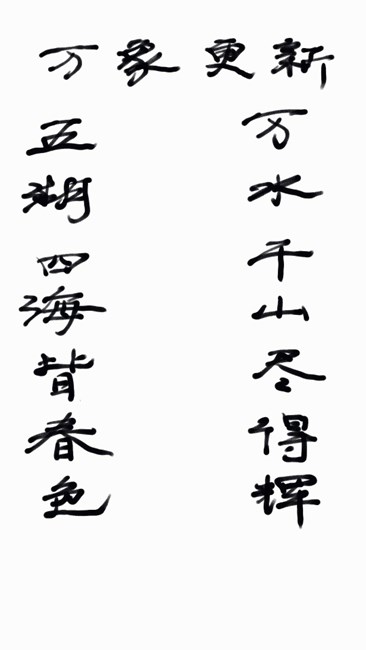 万象更新
五湖四海皆春色
万水千山尽得辉